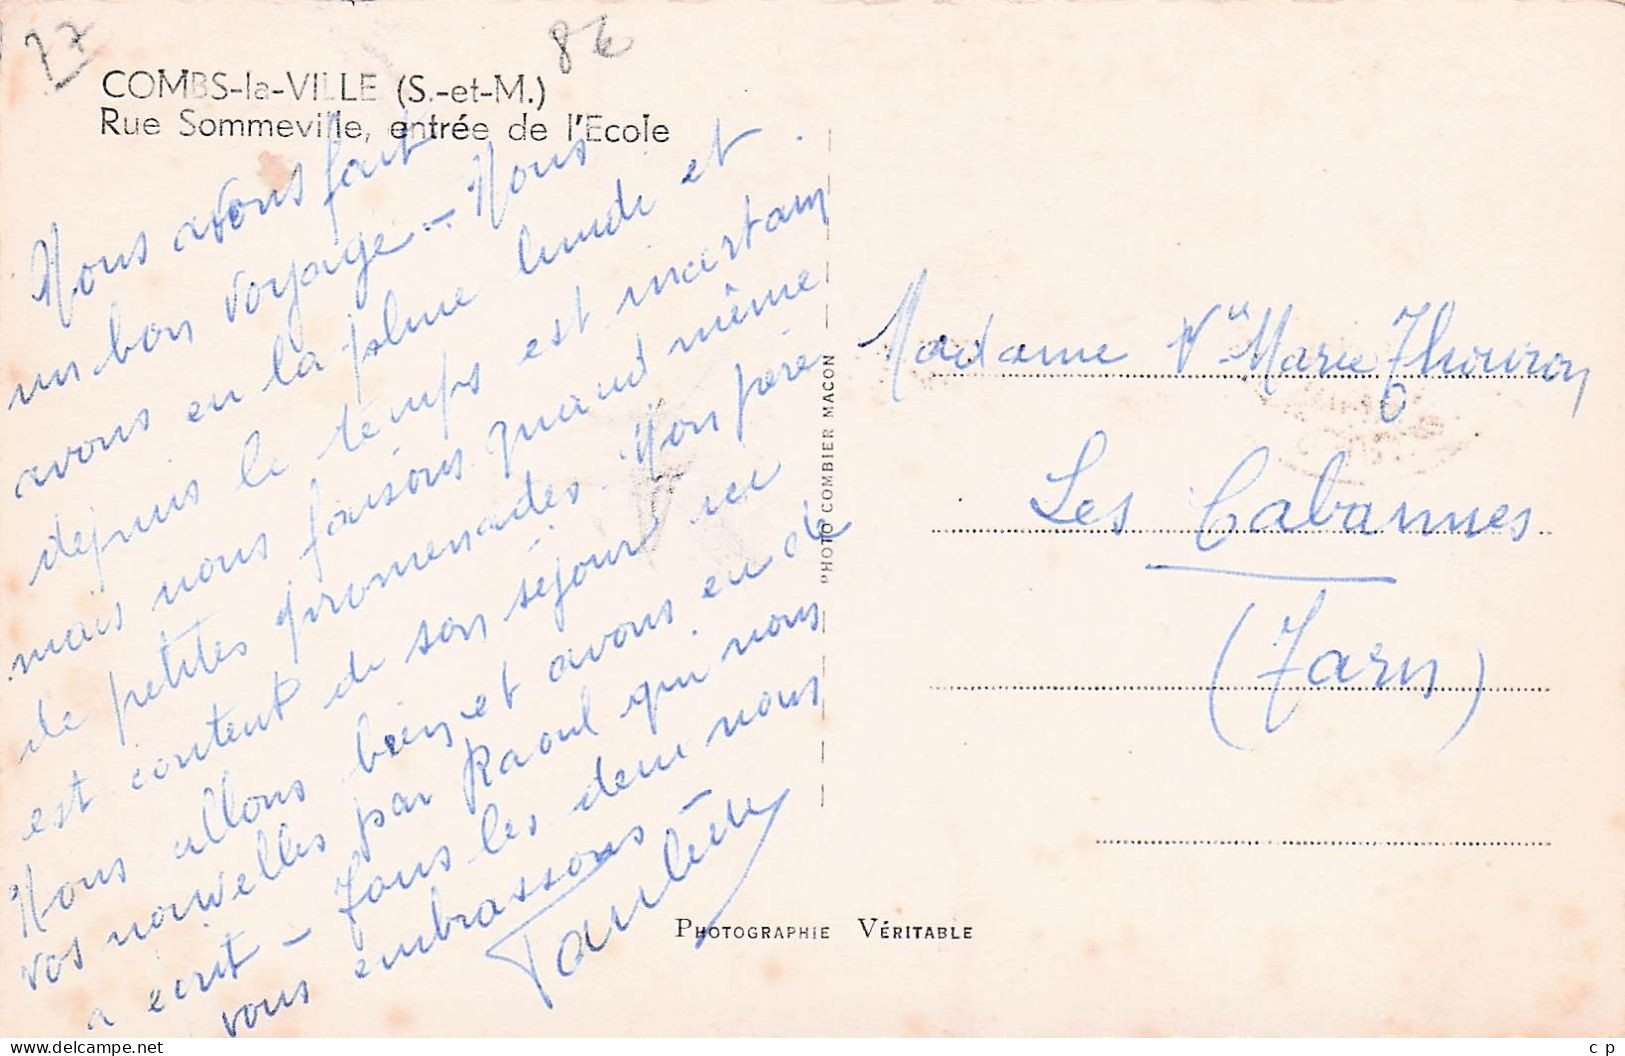 77
86
COMBS-la-VILLE (S.-et-M.)
Rue Sommeville, entrée de l'Ecole
Nous avons fait
un bon voyage - Nous
avons eu la pluie lundi et
depuis le temps est incertain
mais nous faisons quand même
de petites promenades. Mon père
est content de son séjour ici
Nous allons bien et avons eu de
vos nouvelles par Raoul qui nous
a écrit - Tous les deux nous
vous embrassons -
PHOTO COMBIER MACON
Madame Vve Marie Thouron
Les Cabannes
(Tarn)
PHOTOGRAPHIE VÉRITABLE
www.delcampe.net
c p